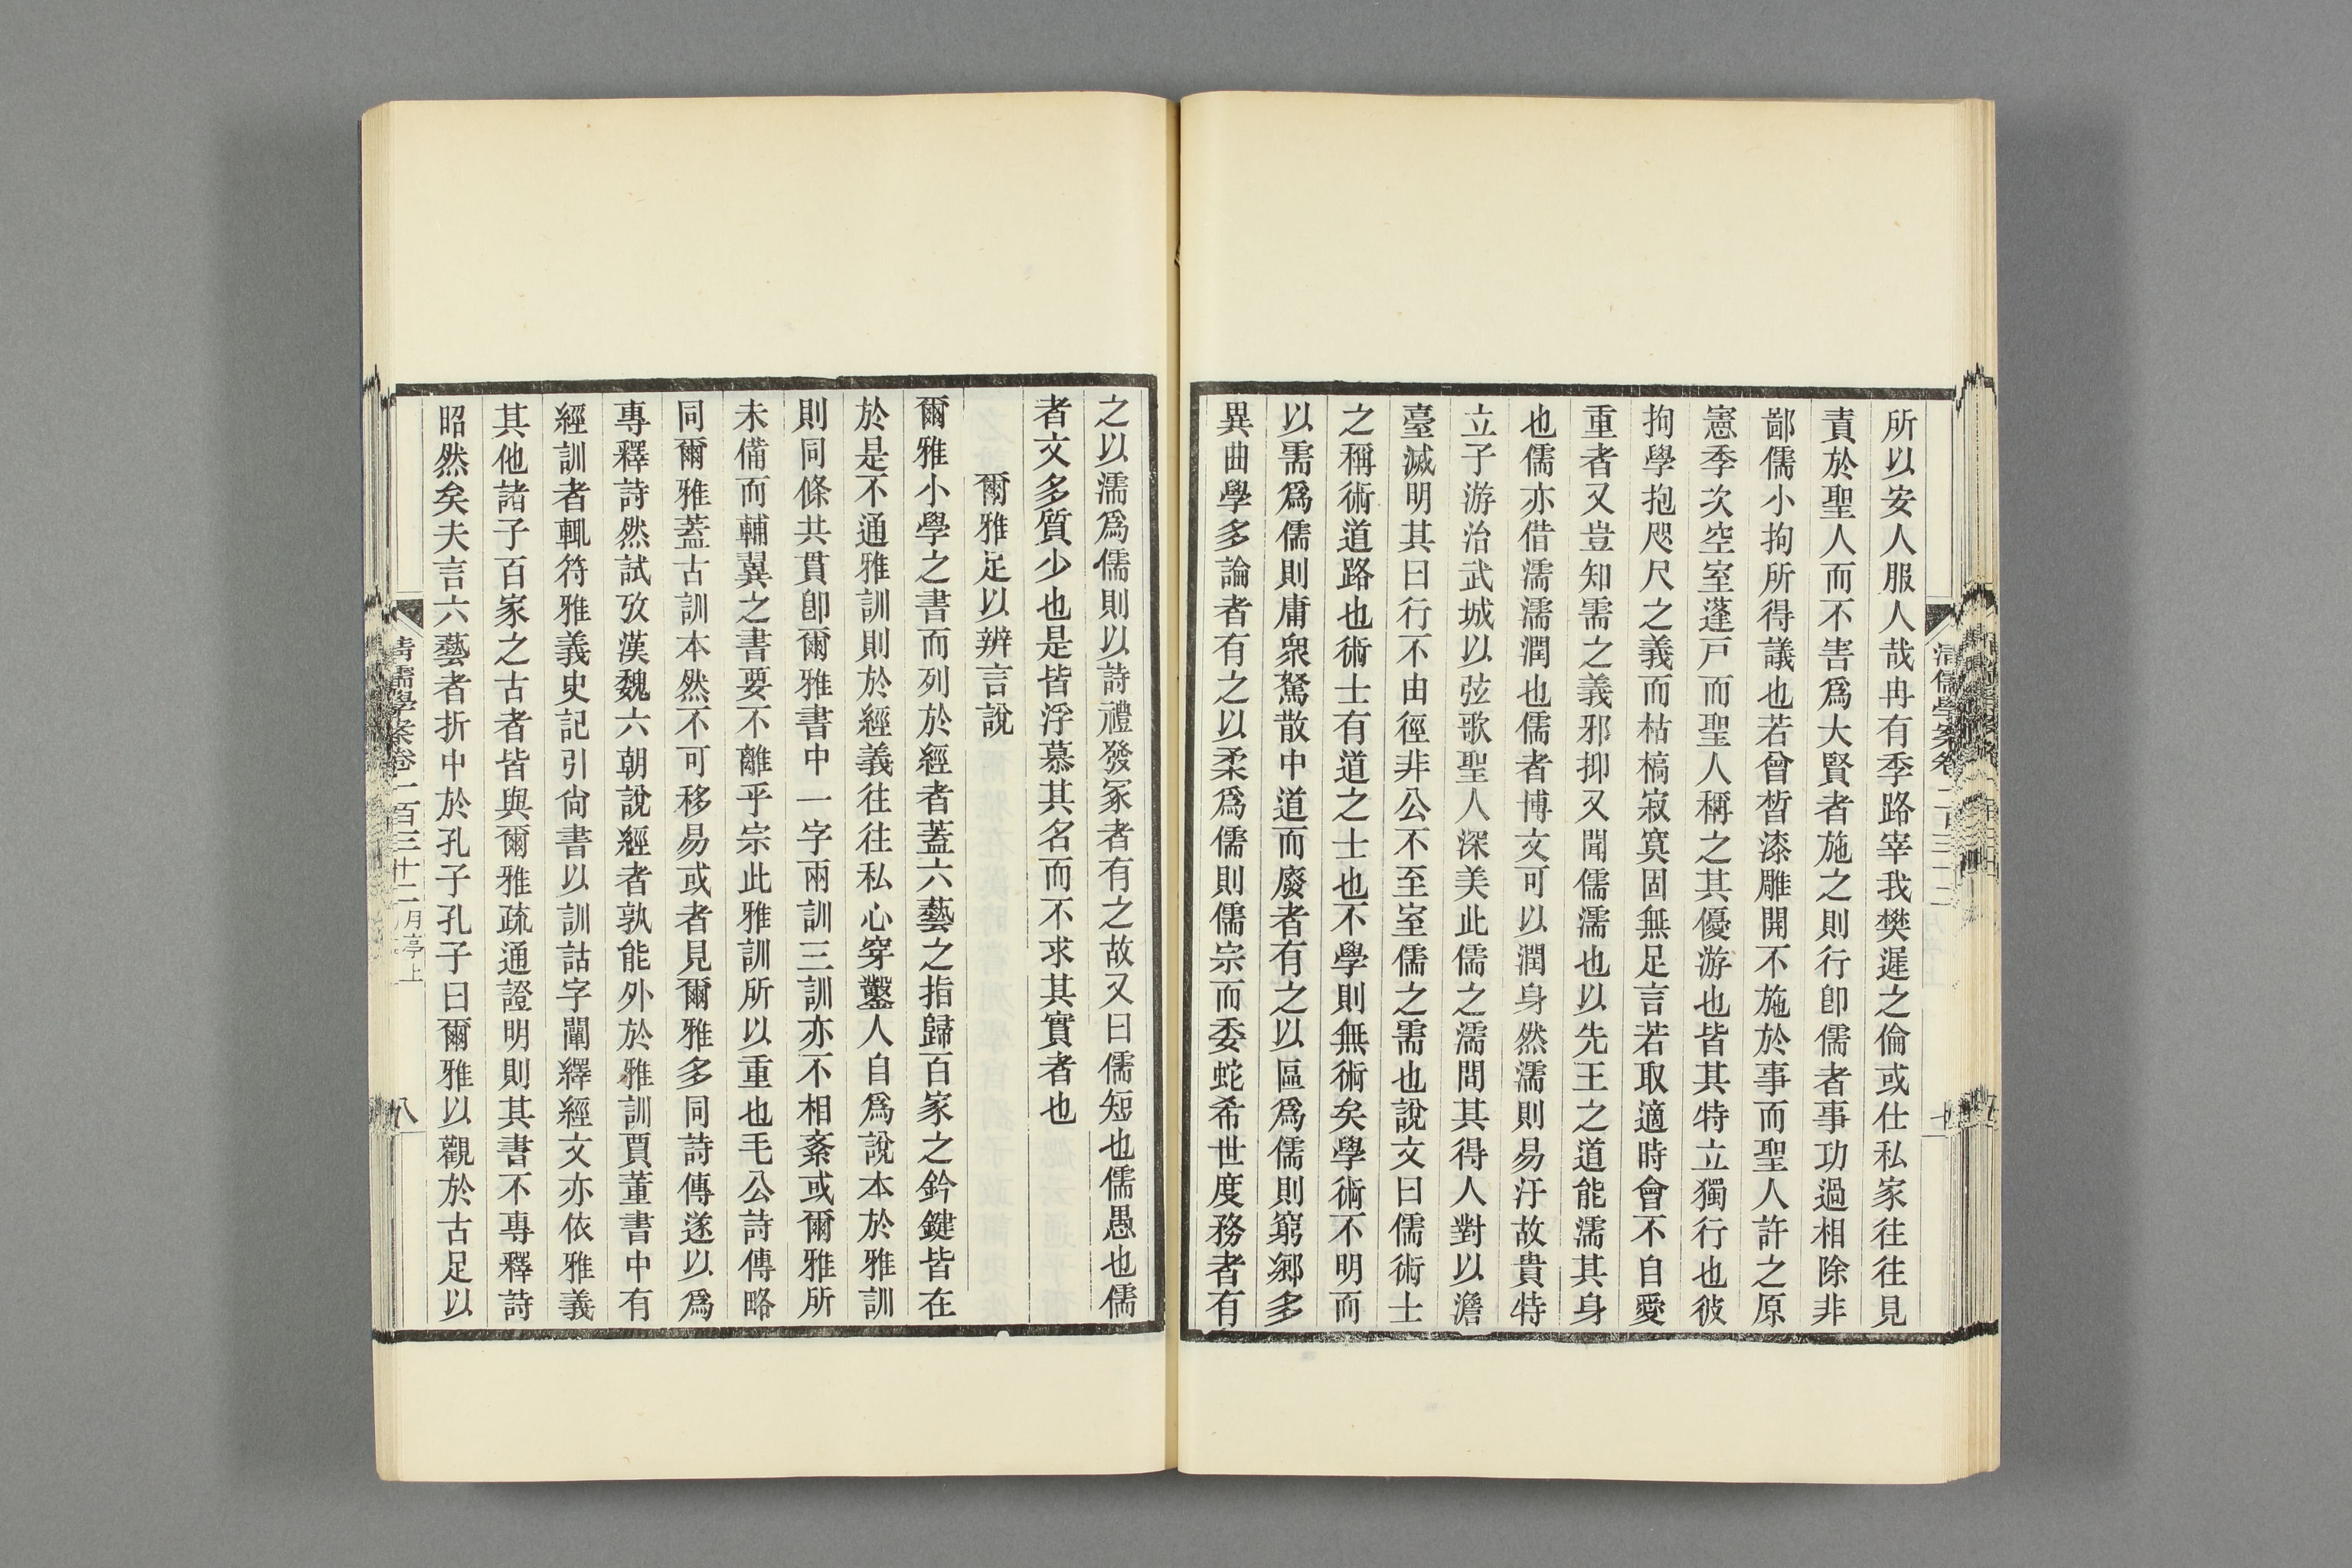 所以安人服人哉冉有季路宰我樊遲之倫或仕私家往往見
責於聖人而不害爲大賢者施之則行卽儒者事功過相除非
鄙儒小拘所得議也若曾皙漆雕開不施於事而聖人許之原
憲季次空室蓬戸而聖人稱之其優游也皆其特立獨行也彼
拘學抱咫尺之義而枯槁寂寞固無足言若取適時會不自愛
重者又豈知需之義邪抑又聞儒濡也以先王之道能濡其身
也儒亦借濡濡潤也儒者博文可以潤身然濡則易汙故貴特
立子游治武城以弦歌聖人深美此儒之濡問其得人對以澹
臺滅明其曰行不由徑非公不至室儒之需也說文曰儒術士
之稱術道路也術士有道之士也不學則無術矣學術不明而
以需爲儒則庸衆駑散中道而廢者有之以區爲儒則窮鄉多
異曲學多論者有之以柔爲儒則儒宗而委蛇希世度務者有
清儒學案卷二百三十二
七
之以濡爲儒則以詩禮發冢者有之故又曰儒短也儒愚也儒
者文多質少也是皆浮慕其名而不求其實者也
爾雅足以辨言說
爾雅小學之書而列於經者蓋六藝之指歸百家之鈐鍵皆在
於是不通雅訓則於經義往往私心穿鑿人自爲說本於雅訓
則同條共貫卽爾雅書中一字兩訓三訓亦不相紊或爾雅所
未備而輔翼之書要不離乎宗此雅訓所以重也毛公詩傳略
同爾雅蓋古訓本然不可移易或者見爾雅多同詩傳遂以爲
專釋詩然試攷漢魏六朝說經者孰能外於雅訓賈董書中有
經訓者輒符雅義史記引尙書以訓詁字闡繹經文亦依雅義
其他諸子百家之古者皆與爾雅疏通證明則其書不專釋詩
昭然矣夫言六藝者折中於孔子孔子曰爾雅以觀於古足以
清儒學案卷二百三十二 月亭上
八